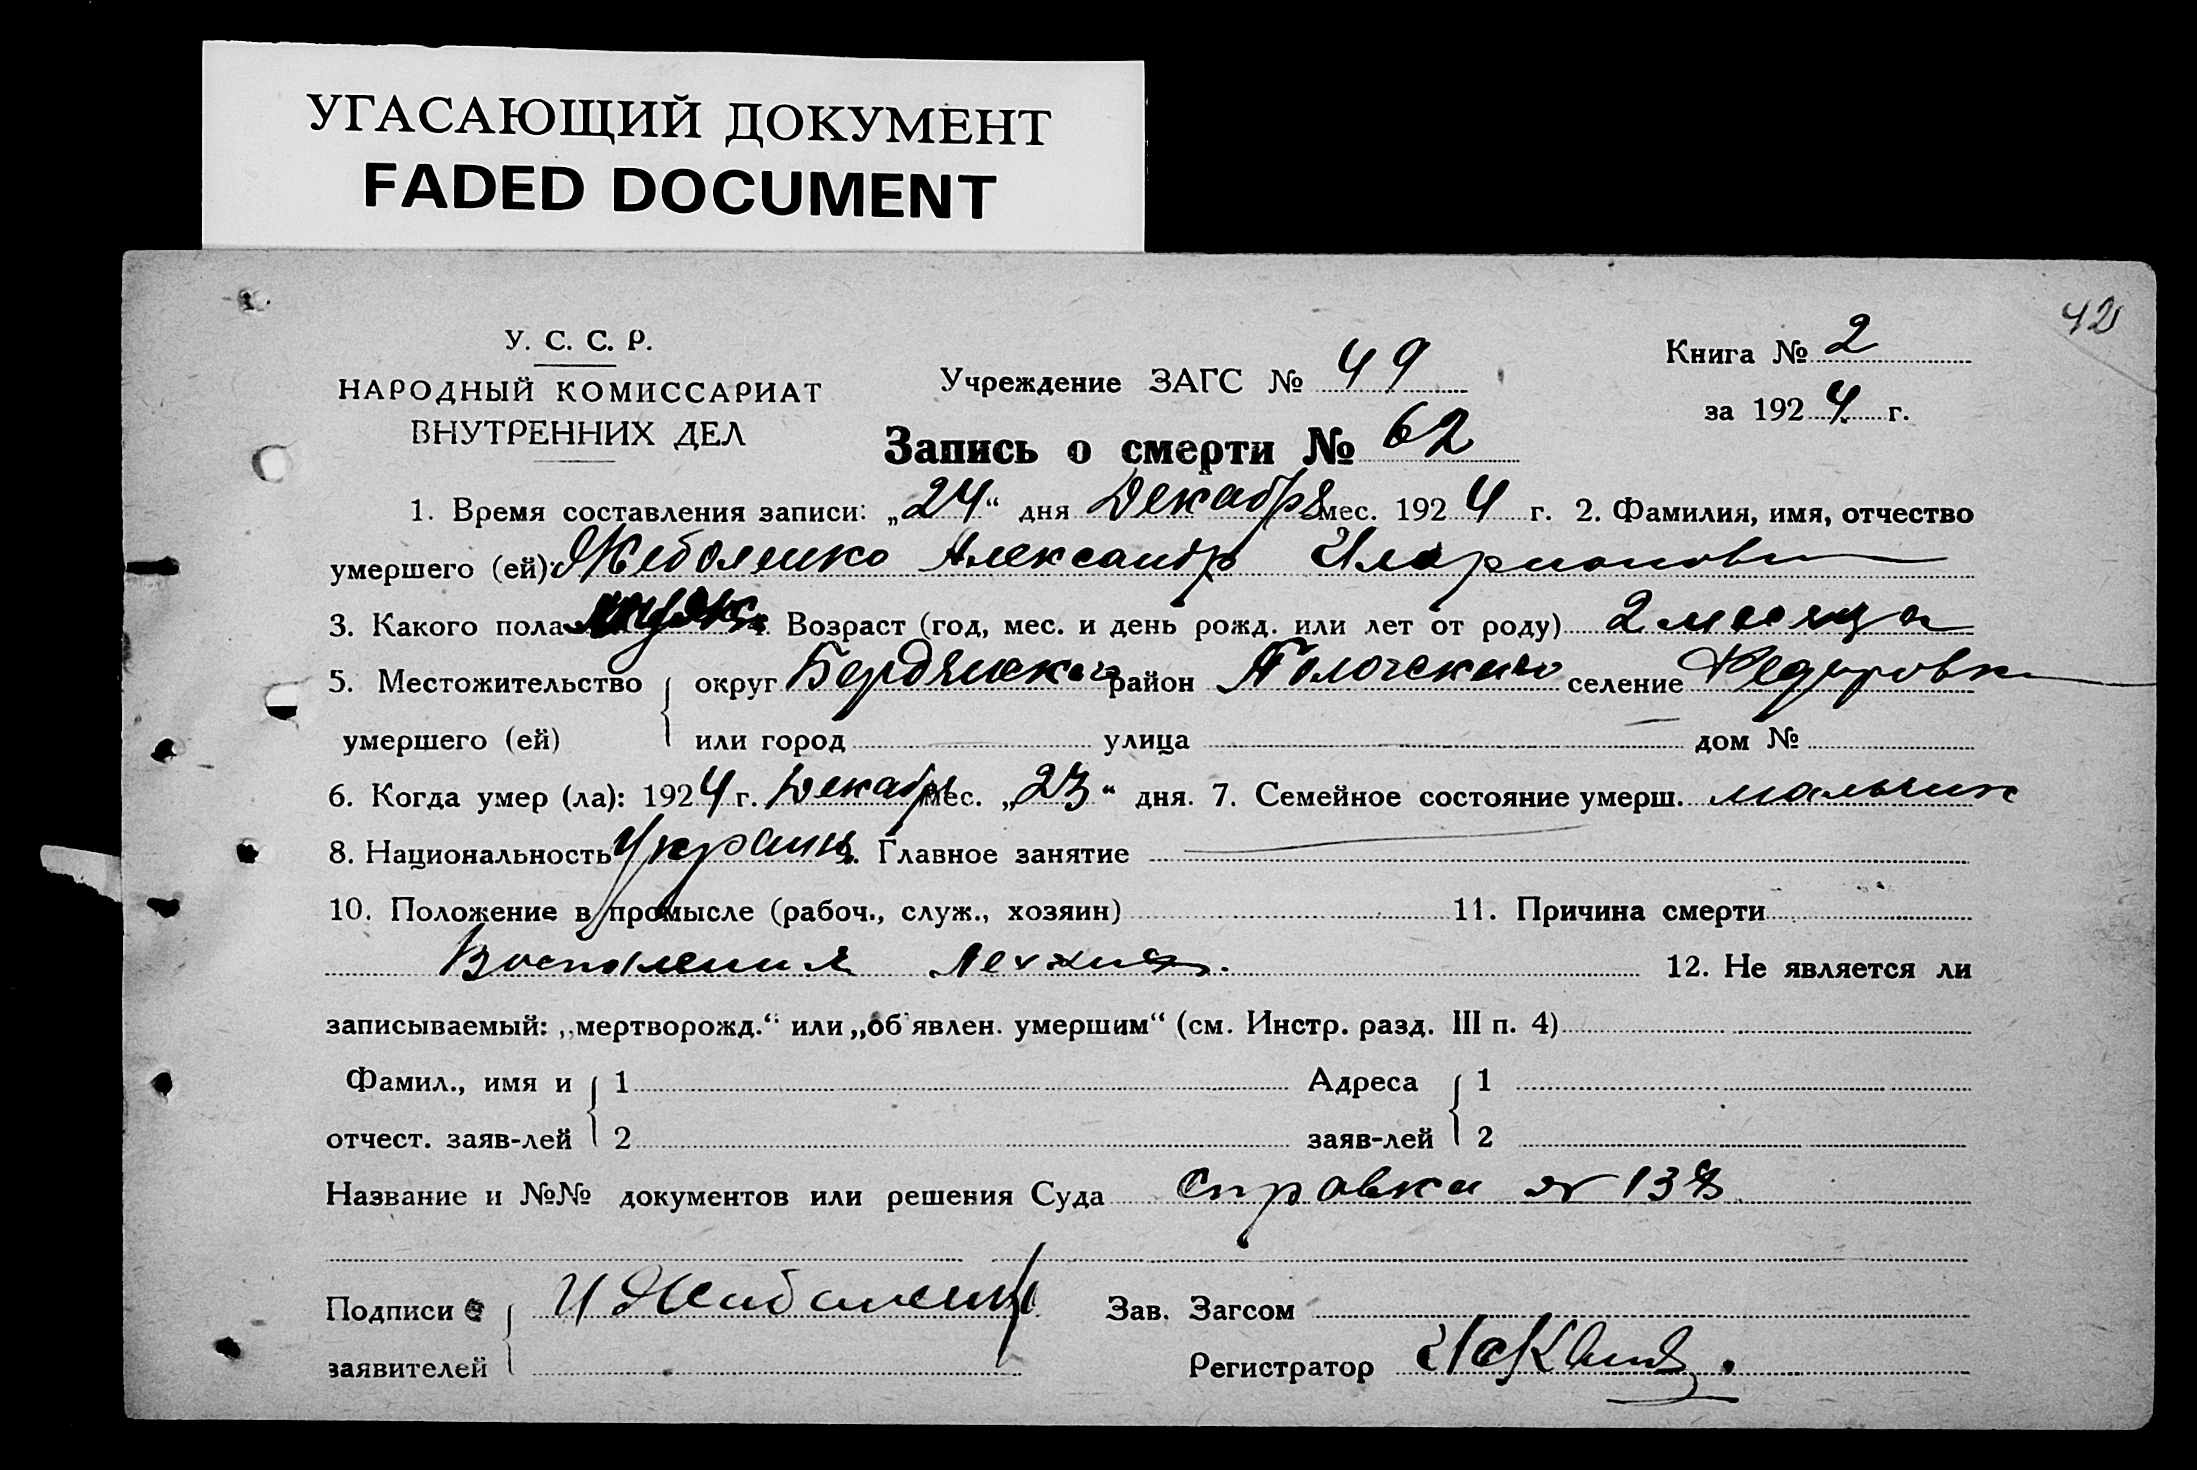 УГАСАЮЩИЙ ДОКУМЕНТ
FADED DOCUMENT
42
У. С. С. Р.
НАРОДНЫЙ КОМИССАРИАТ
ВНУТРЕННИХ ДЕЛ
Учреждение ЗАГС № 49
Книга № 2
за 1924 г.
Запись о смерти № 62
1. Время составления записи: „24“ дня Декабря мес. 1924 г. 2. Фамилия, имя, отчество
умершего (ей): Александр Иларионович
3. Какого пола мужск. 4. Возраст (год, мес. и день рожд. или лет от роду) 2 месяца
5. Местожительство округ Бердянского район селение Федоровка
умершего (ей) или город улица дом №
6. Когда умер (ла): 1924 г. Декабрь мес. „23“ дня. 7. Семейное состояние умерш. мальчик
8. Национальность Украин. 9. Главное занятие
10. Положение в промысле (рабоч., служ., хозяин) 11. Причина смерти
Воспаления Легких. 12. Не является ли
записываемый: „мертворожд.“ или „об'явлен. умершим“ (см. Инстр. разд. III п. 4)
Фамил., имя и 1 Адреса 1
отчест. заяв-лей 2 заяв-лей 2
Название и №№ документов или решения Суда Справка №
Подписи И Зав. Загсом
заявителей Регистратор